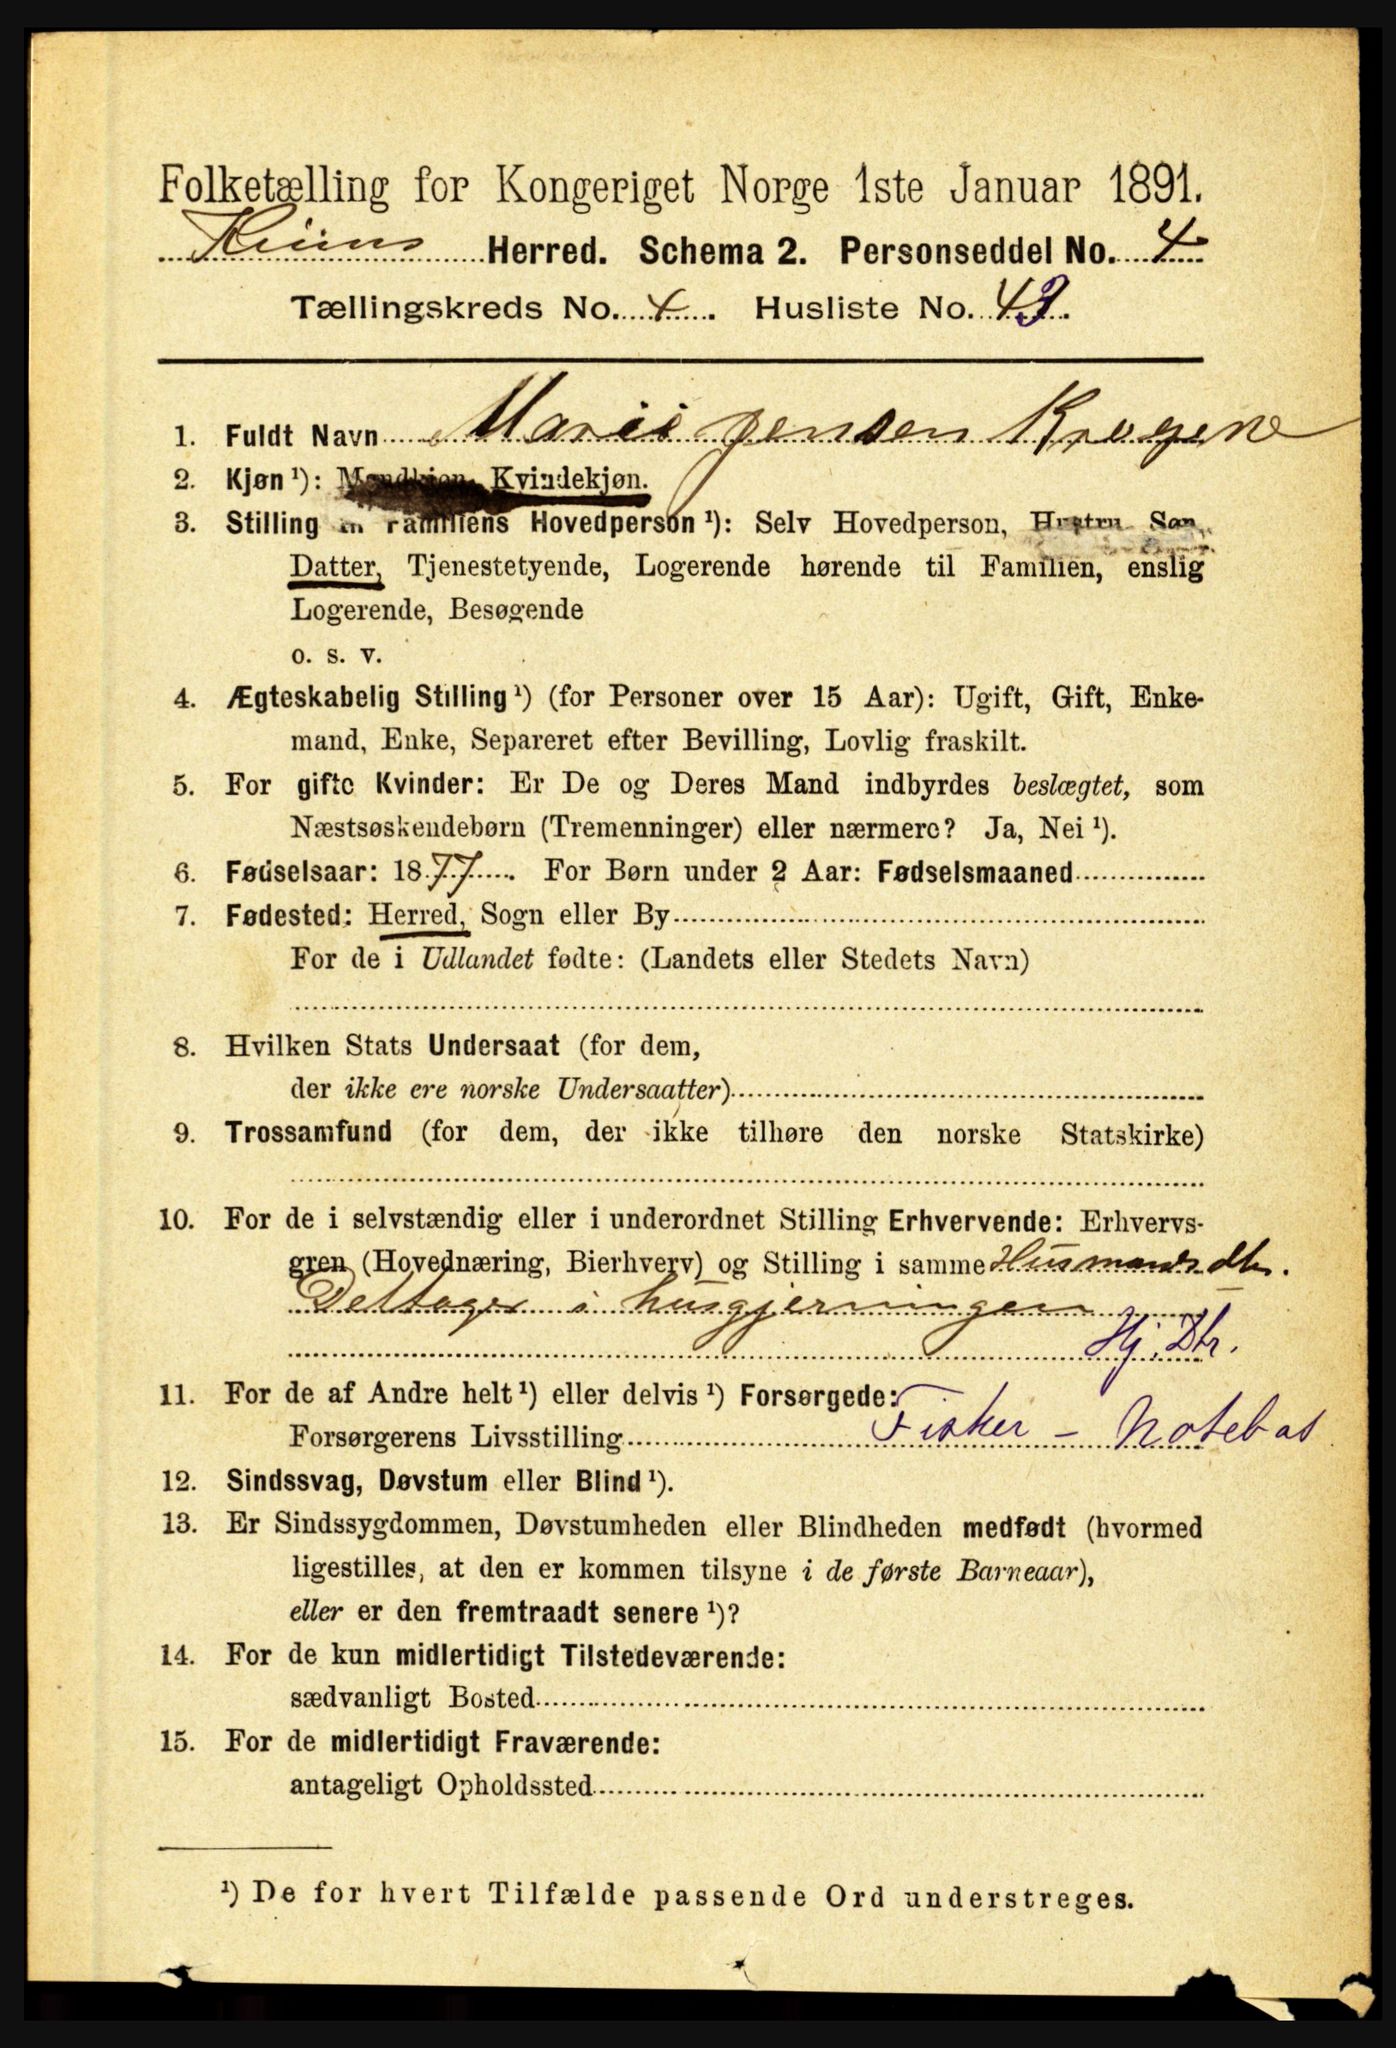 Folketælling for Kongeriget Norge 1ste Januar 1891.
Kinns Herred. Schema 2. Personseddel No. 4
Tællingskreds No. 4. Husliste No. 43.
1. Fuldt Navn Marie Jensen
2. Kjøn ¹): Mandkjøn, Kvindekjøn.
3. Stilling til Familiens Hovedperson ¹): Selv Hovedperson, Hustru, Søn,
Datter, Tjenestetyende, Logerende hørende til Familien, enslig
Logerende, Besøgende
o. s. v.
4. Ægteskabelig Stilling ¹) (for Personer over 15 Aar): Ugift, Gift, Enke-
mand, Enke, Separeret efter Bevilling, Lovlig fraskilt.
5. For gifte Kvinder: Er De og Deres Mand indbyrdes beslægtet, som
Næstsøskendebørn (Tremenninger) eller nærmere? Ja, Nei ¹).
6. Fødselsaar: 1877. For Børn under 2 Aar: Fødselsmaaned
7. Fødested: Herred, Sogn eller By
For de i Udlandet fødte: (Landets eller Stedets Navn)
8. Hvilken Stats Undersaat (for dem,
der ikke ere norske Undersaatter)
9. Trossamfund (for dem, der ikke tilhøre den norske Statskirke)
10. For de i selvstændig eller i underordnet Stilling Erhvervende: Erhvervs-
gren (Hovednæring, Bierhverv) og Stilling i samme Husmands dtr.
Deltager i husgjerningen
Hj. Dtr.
11. For de af Andre helt ¹) eller delvis ¹) Forsørgede:
Forsørgerens Livsstilling Fisker - Notebas
12. Sindssvag, Døvstum eller Blind ¹).
13. Er Sindssygdommen, Døvstumheden eller Blindheden medfødt (hvormed
ligestilles, at den er kommen tilsyne i de første Barneaar),
eller er den fremtraadt senere ¹)?
14. For de kun midlertidigt Tilstedeværende:
sædvanligt Bosted
15. For de midlertidigt Fraværende:
antageligt Opholdssted
¹) De for hvert Tilfælde passende Ord understreges.